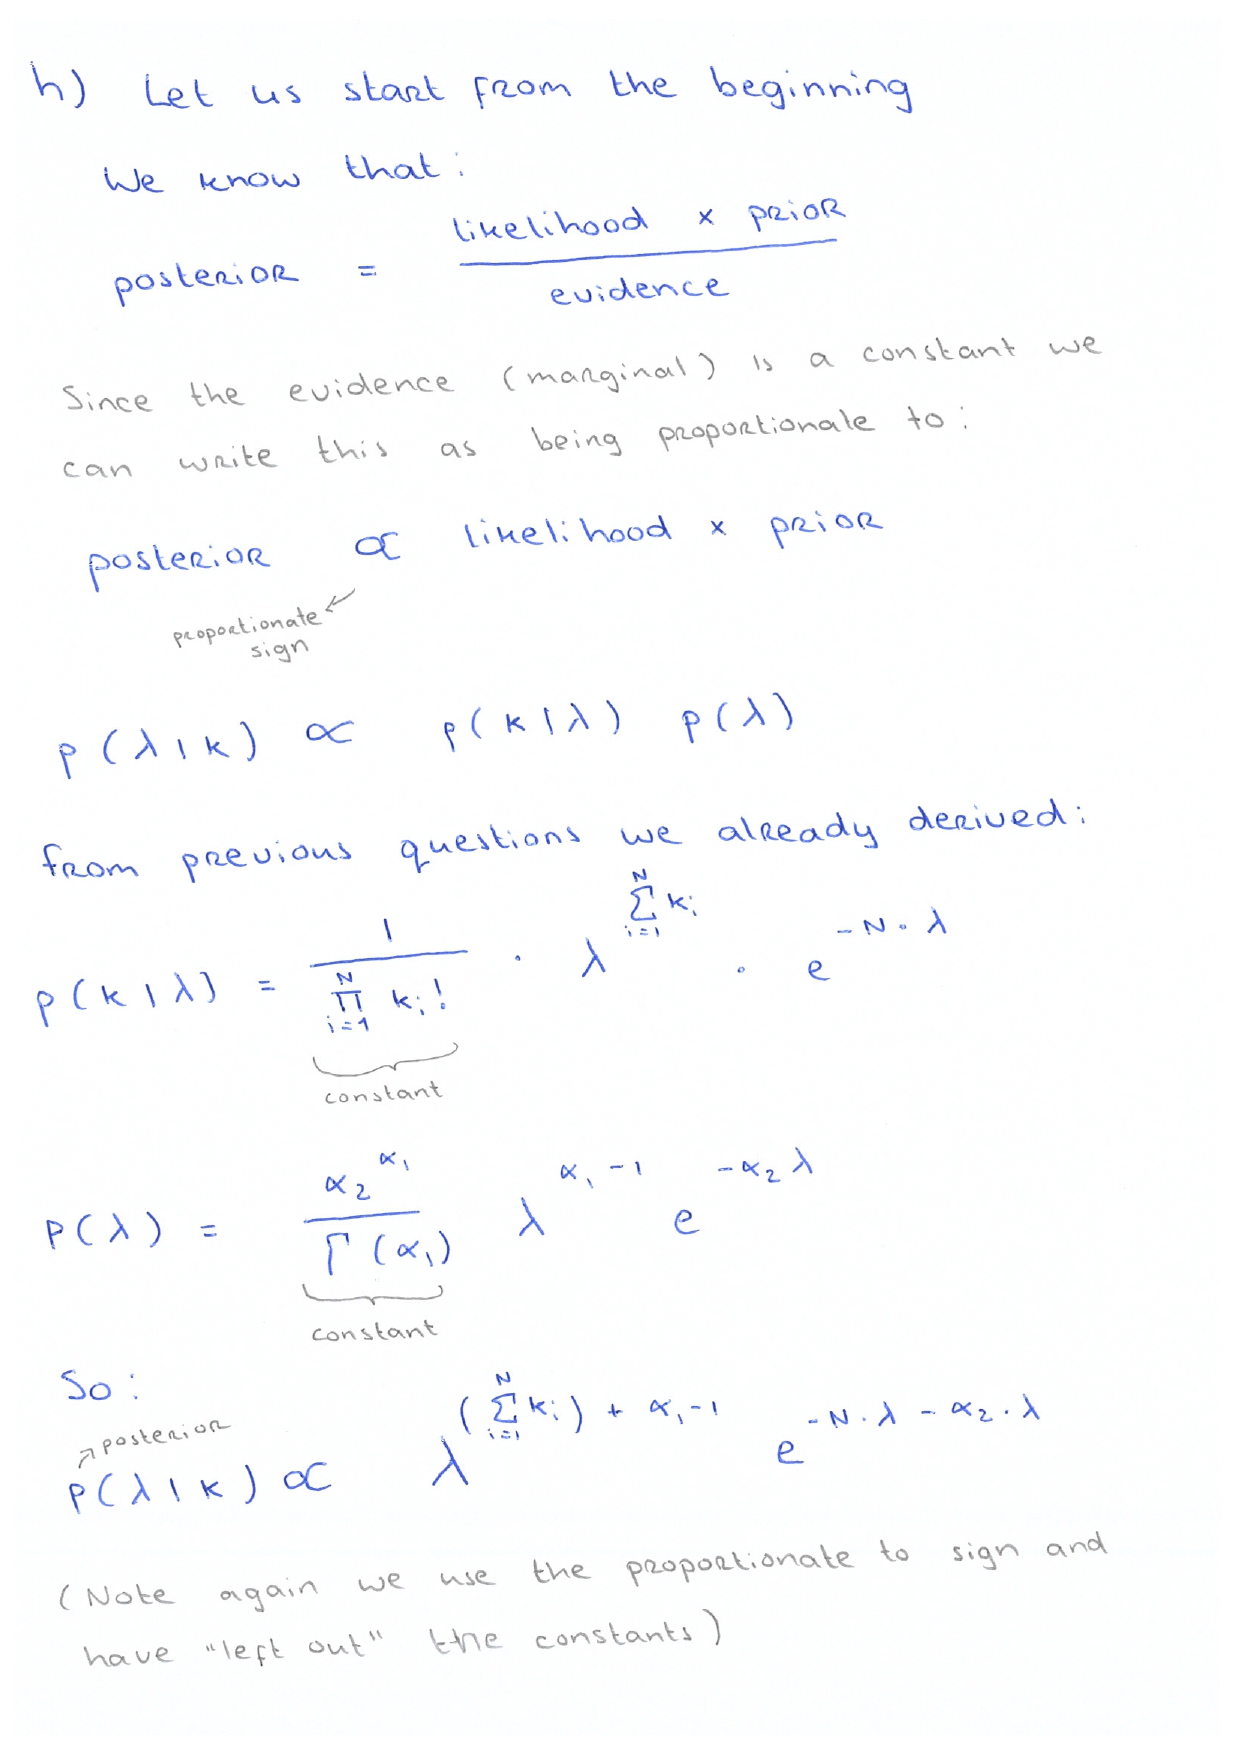 h) Let us start from the beginning
We know that:
posterior = likelihood × prior / evidence
Since the evidence (marginal) is a constant we
can write this as being proportionale to:
posterior ∝ likelihood × prior
proportionate
sign
p(λ|k) ∝ p(k|λ) p(λ)
from previous questions we already derived:
p(k|λ) = 1 / ∏_{i=1}^{N} k_i! · λ^{∑_{i=1}^{N} k_i} · e^{-N·λ}
constant
P(λ) = α₂^{α₁} / Γ(α₁) λ^{α₁-1} e^{-α₂λ}
constant
So:
posterior
P(λ|k) ∝ λ^{(∑_{i=1}^{N} k_i) + α₁-1} e^{-N·λ-α₂·λ}
(Note again we use the proportionate to sign and
have "left out" the constants)